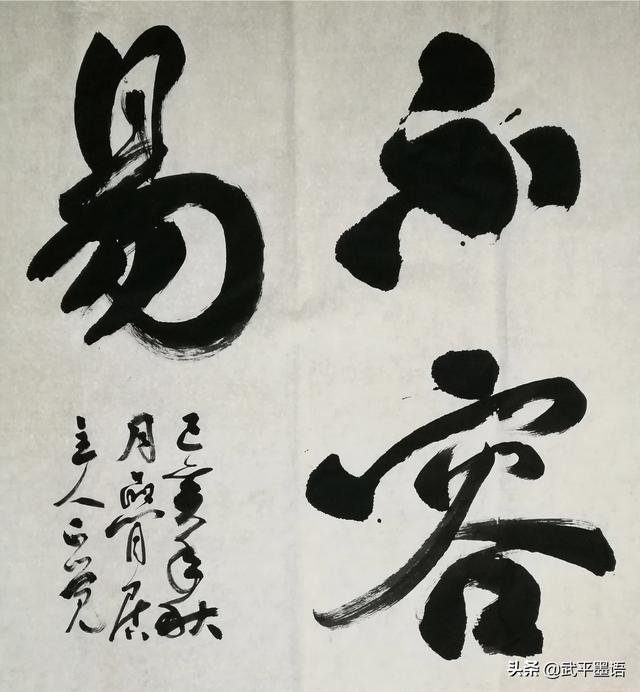 不容
易
己亥年秋
月
居
主人正觉
头条 @武平墨语